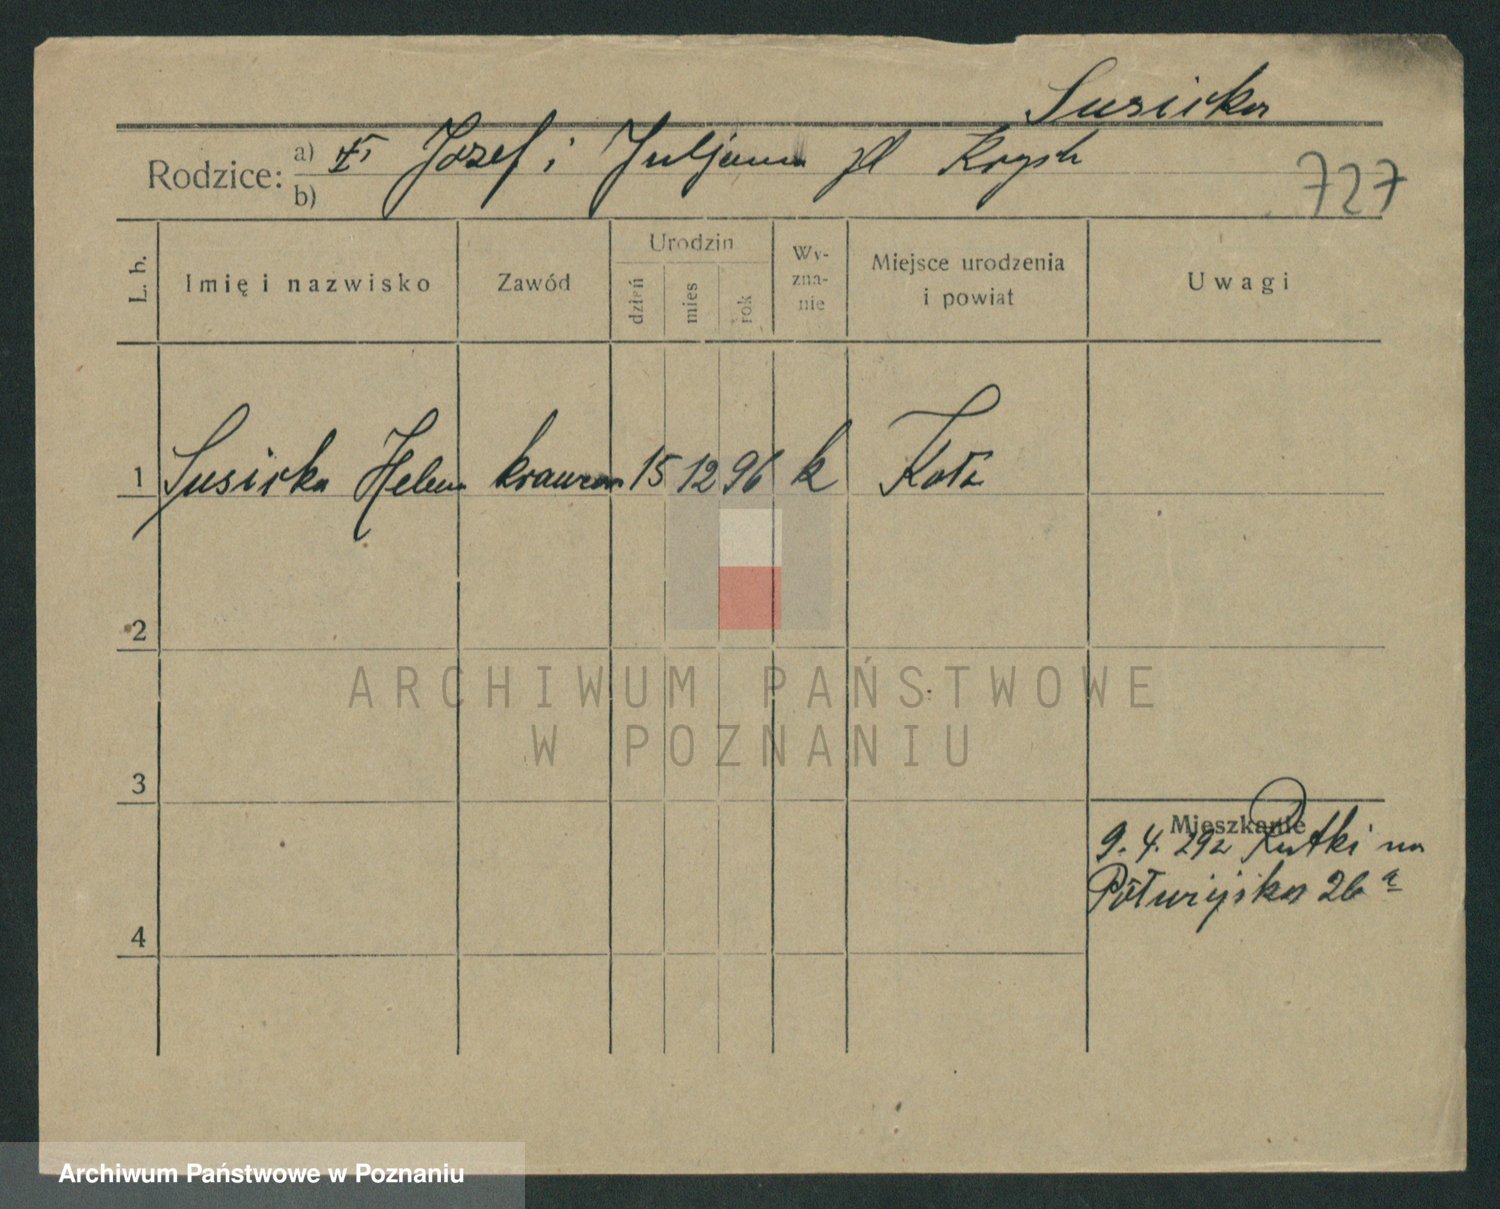 Susicka
Rodzice: a) Józef i Juljanna
727
b)
L. b.
Imię i nazwisko
Zawód
Urodzin
dzień
mies
rok
Wy-
zna-
nie
Miejsce urodzenia
i powiat
Uwagi
1 Susicka Helena 15 12 96 k
2
ARCHIWUM PAŃSTWOWE
W POZNANIU
3
Mieszkanie
9. 4. 29 Rutki na
26
4
Archiwum Państwowe w Poznaniu